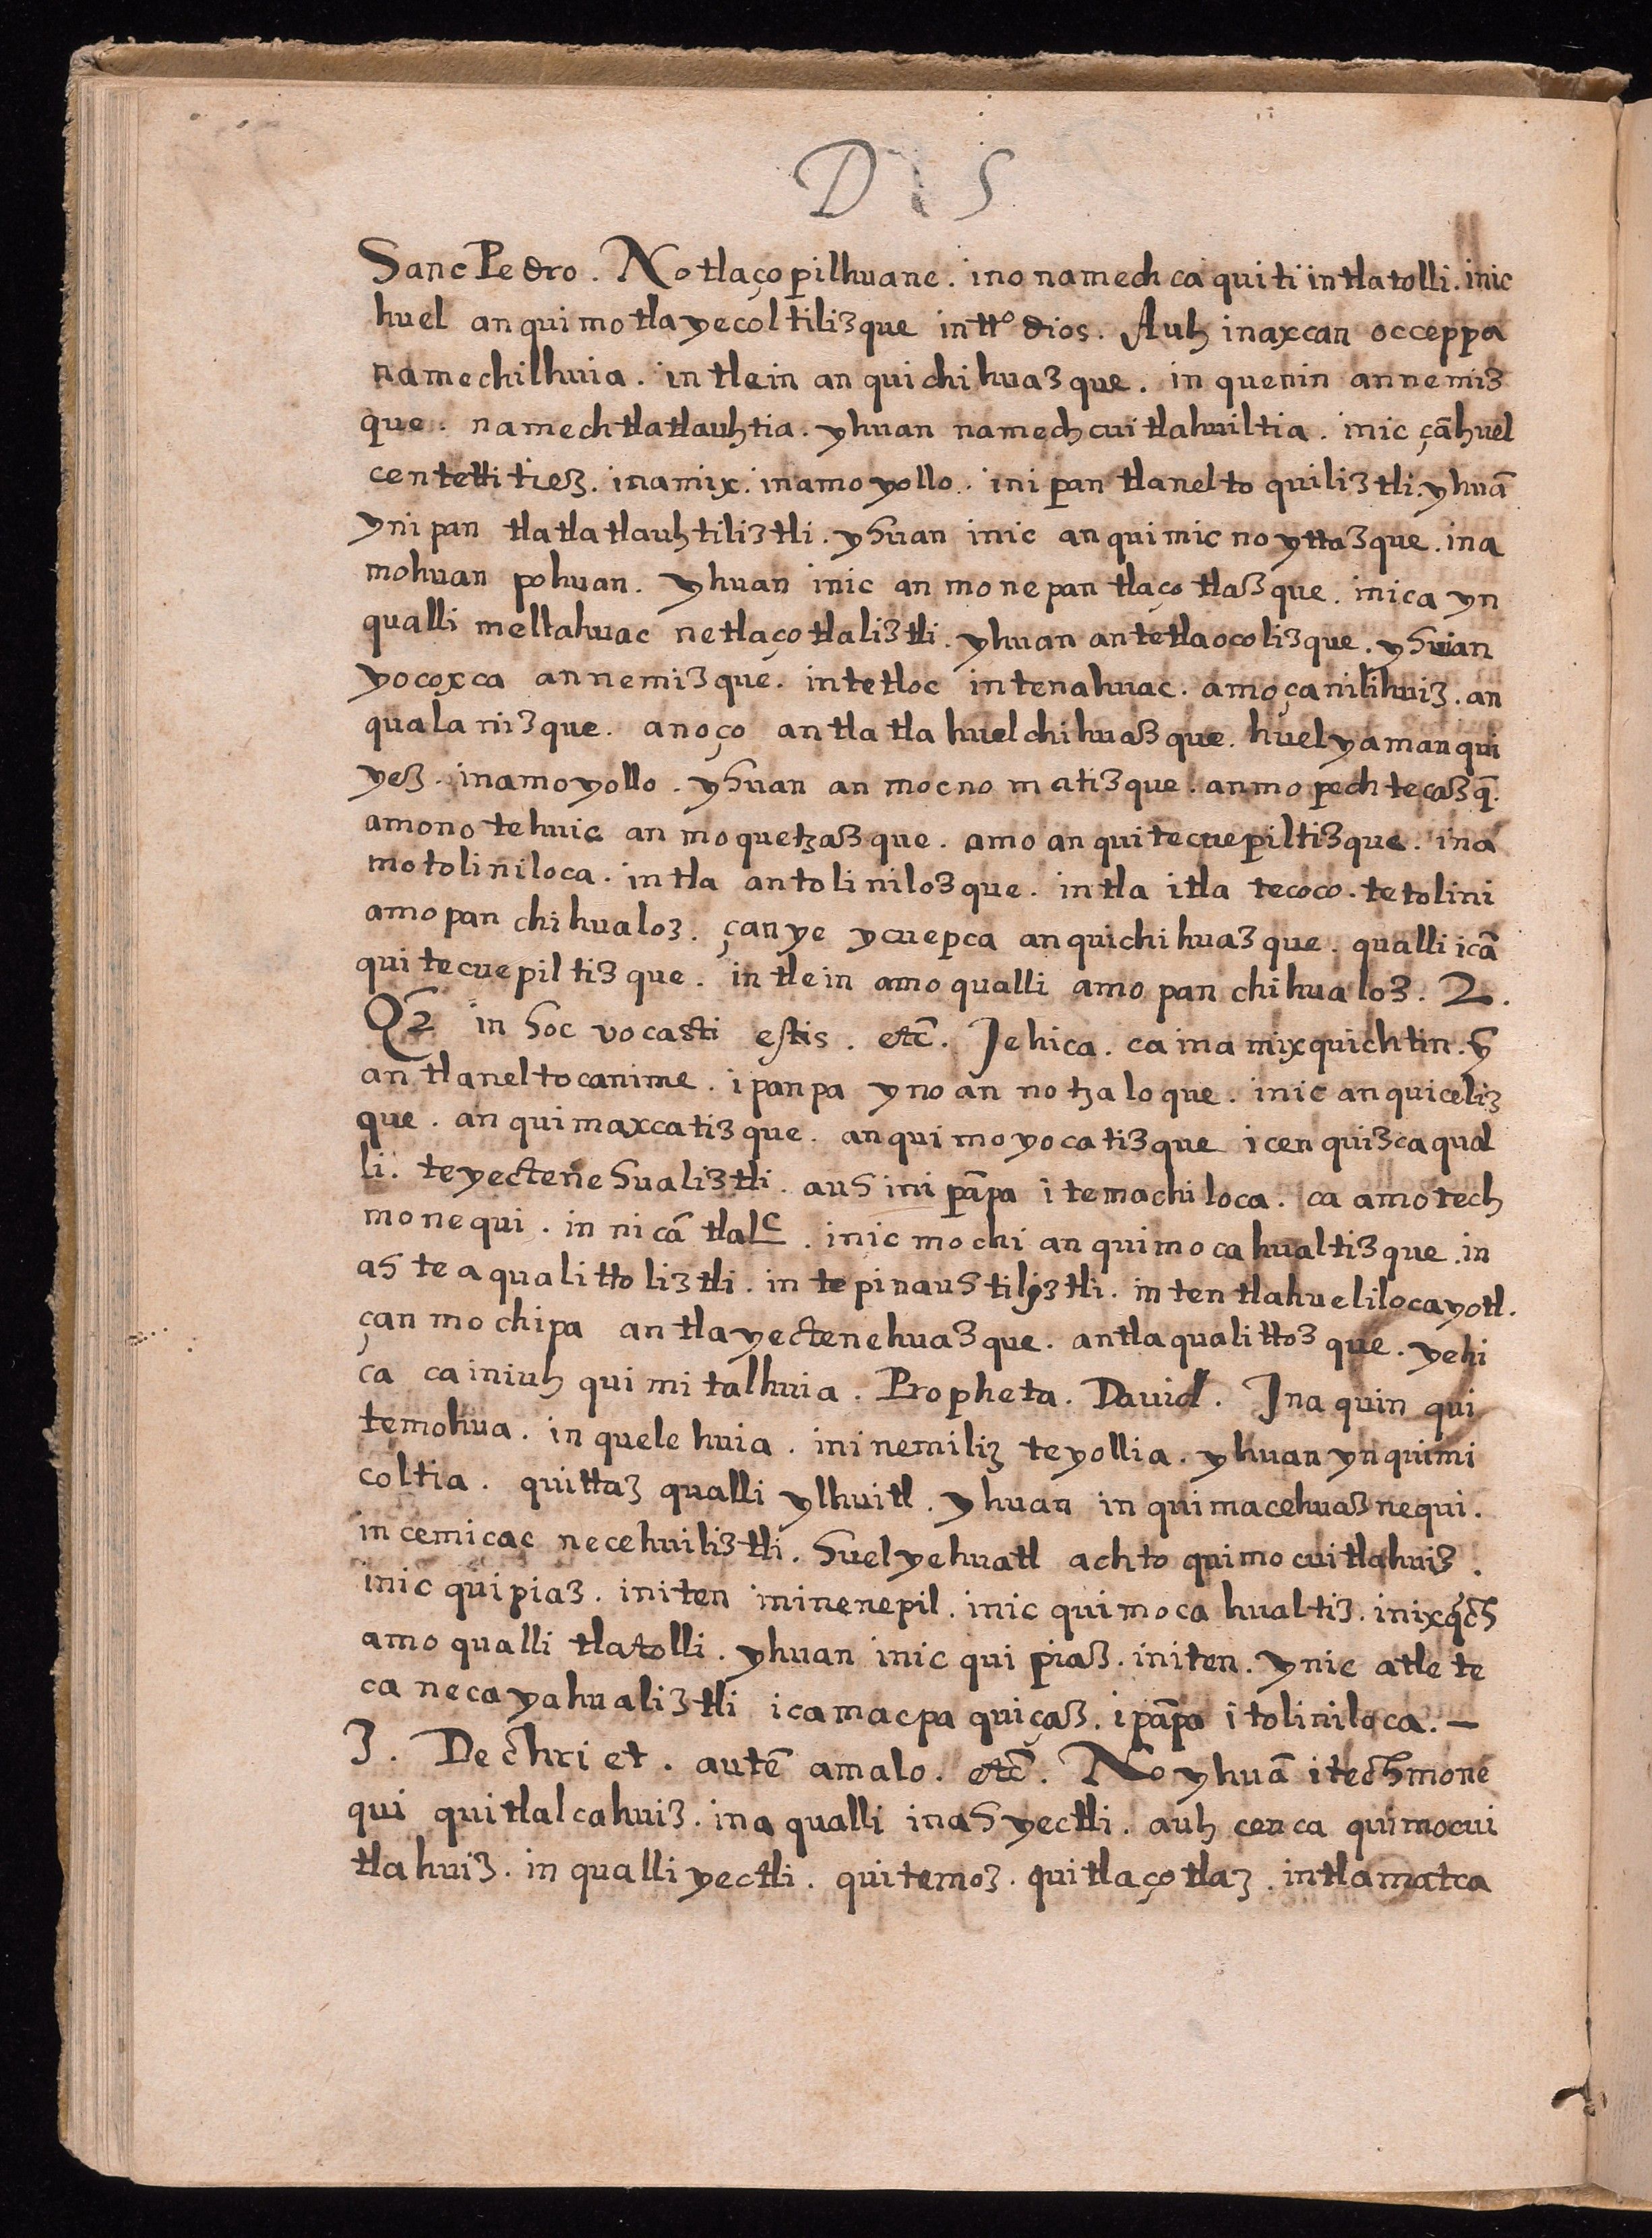 D I S
Sanc Pedro. No tlaço pilhuane. ino namech ca qui ti in tlatolli. inic
huel an qui mo tla yecol tiliz que in ttº dios. Auh inaxcan occeppa
namechilhuia. in tlein an qui chi huaz que. in quenin an nemiz
que. namech tlatlauhtia. yhuan namech cui tlahuiltia. inic çãhuel
centetti tiez. inamix. inamo yollo. ini pan tlanelto quiliztli. yhuã
yni pan tlatla tlauhtiliztli. yhuan inic an qui mic no yttaz que. ina
mohuan pohuan. yhuan inic an mo ne pan tlaço tlaz que. inica yn
qualli mellahuac netlaço tlaliztli. yhuan an tetlaocoliz que. yhuian
yocoxca an nemiz que. in tetloc in tenahuac. amo çanilihuiz. an
quala niz que. anoço an tla tla huel chi huaz que. huel yaman qui
yez. inamo yollo. yhuan an moc no matiz que. anmo pech tecaz q̃.
amono tehuic an mo quetzaz que. amo an qui tecuepiltiz que. ina
motoliniloca. in tla an toliniloz que. in tla itla tecoco. te tolini
amo pan chi hualoz. çan ye ycuepca an qui chi huaz que. qualli icã
qui tecue pil tiz que. in tlein amo qualli amo pan chi hua loz. 2.
Qz in hoc vocasti estis. etc̃. Jehica. ca ina mixquich tin. ỹ
an tlanel tocanime. i panpa yno an no tza lo que. inic an qui celiz
que. an qui maxcatiz que. an qui mo yo ca tiz que i cen quiz ca qual
li. te yectenehualiztli. auh ini pãpa i temachi loca. ca amo tech
mo nequi. in ni cã tlalc. inic mo chi an qui mo ca hualtiz que. in
ah te a qualitto liztli. in te pi nauh tiliztli. in ten tlahuelilocayotl.
çan mo chipa an tla yectenehuaz que. an tla qualittoz que. yehi
ca ca iniuh qui mi talhuia. Propheta. David. Ina quin qui
temohua. in quele huia. ini nemiliz te yollia. yhuan yn qui mi
coltia. quittaz qualli ylhuitl. yhuan in qui macehuaz nequi.
in cemicac necehuiliztli. huel yehuatl achto qui mo cuitlahuiz.
inic qui piaz. ini ten ini nenepil. inic qui mo ca hualtiz. inixq̃ch
amo qualli tlatolli. yhuan inic qui piaz. ini ten. ynic atle te
ca neca yahualiztli icamacpa quiçaz. i pãpa i toliniloca. —
3. De chri et. autẽ amalo. etc̃. No yhuã itechmone
qui qui tlal cahuiz. ina qualli inah yectli. auh cenca quimocui
tla huiz. in qualli yectli. qui temoz. qui tlaço tlaz. in tlamatca